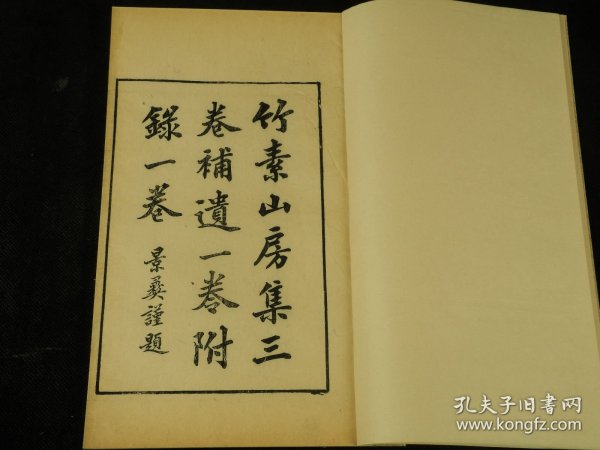 竹素山房集三
卷補遺一卷附
錄一卷
景彝謹題
孔夫子旧書网
www.kongfz.com